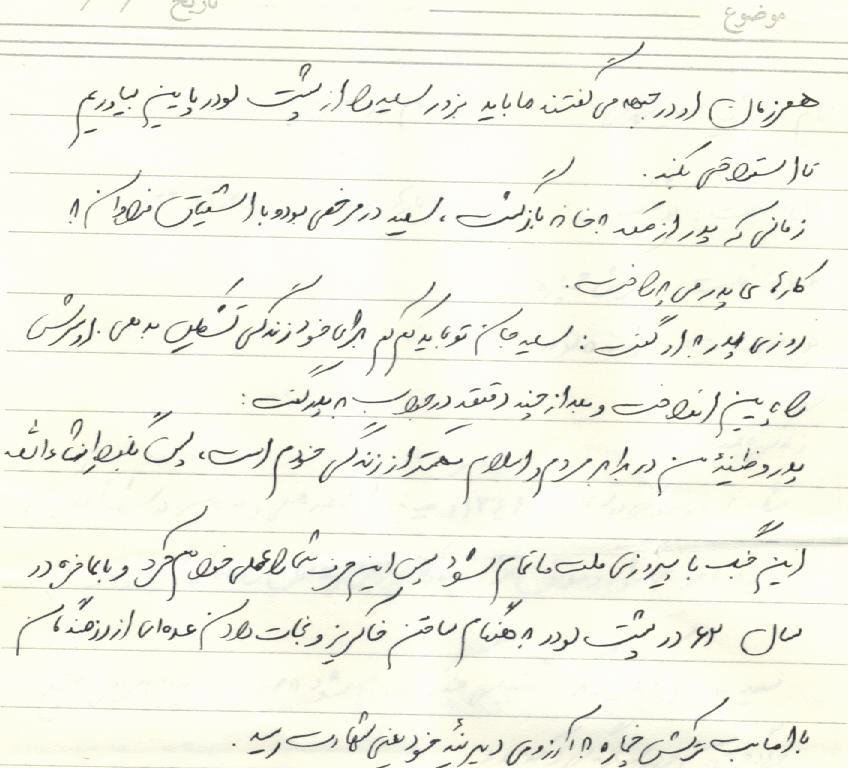 موضوع تاریخ / /
همرزمان او در جبهه می گفتند ما باید بزور سعید را از پشت لودر پایین بیاوریم
تا استراحتی بکند.
زمانی که پدر از مکه به خانه بازگشت، سعید در مرخصی بود و با اشتیاق فراوان به
کارهای پدر می پرداخت.
روزی پدر به او گفت: سعید جان تو باید کم کم برای خود زندگی تشکیل بدهی. او سرش
را پایین انداخت و بعد از چند دقیقه در جواب به پدر گفت:
پدر وظیفۀ من در برابر مردم و اسلام مهمتر از زندگی خودم است، پس بگذار انشاءالله
این جنگ با پیروزی ملت ما تمام شود پس این حرف شما را عملی خواهم کرد و بالاخره در
سال ۶۲ در پشت لودر به هنگام ساختن خاکریز و نجات دادن عده ای از رزمندگان
با اصابت ترکش خمپاره به آرزوی دیرینۀ خود یعنی شهادت رسید.